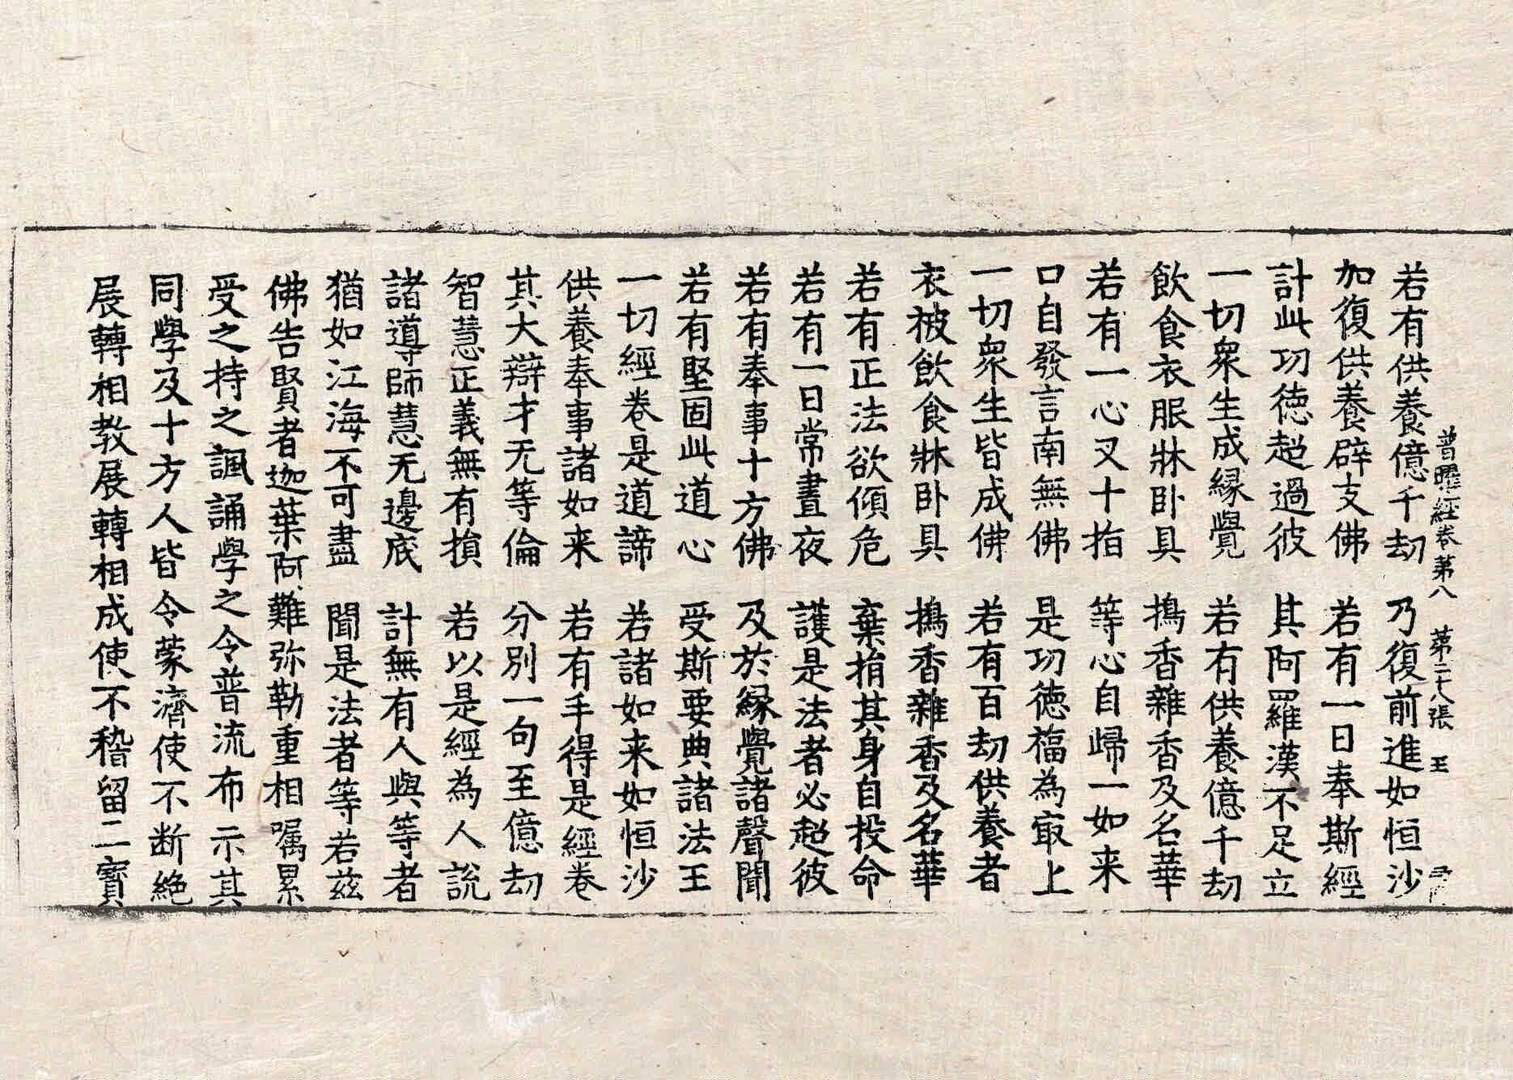 普曜經卷第八 第二十八張 王
若有供養億千劫 乃復前進如恒沙
加復供養辟支佛 若有一日奉斯經
計此功德超過彼 其阿羅漢不足立
一切衆生成緣覺 若有供養億千劫
飲食衣服牀卧具 擣香雜香及名華
若有一心叉十指 等心自歸一如来
口自發言南無佛 是功德福為㝡上
一切衆生皆成佛 若有百劫供養者
衣被飲食牀卧具 擣香雜香及名華
若有正法欲傾危 棄捐其身自投命
若有一日常晝夜 護是法者必超彼
若有奉事十方佛 及於緣覺諸聲聞
若有堅固此道心 受斯要典諸法王
一切經卷是道諦 若諸如来如恒沙
供養奉事諸如来 若有手得是經卷
其大辯才无等倫 分別一句至億劫
智慧正義無有損 若以是經為人説
諸導師慧无邊底 計無有人與等者
猶如江海不可盡 聞是法者等若兹
佛告賢者迦葉阿難弥勒重相囑累
受之持之諷誦學之令普流布示其
同學及十方人皆令蒙濟使不断絶
展轉相教展轉相成使不稽留二寳